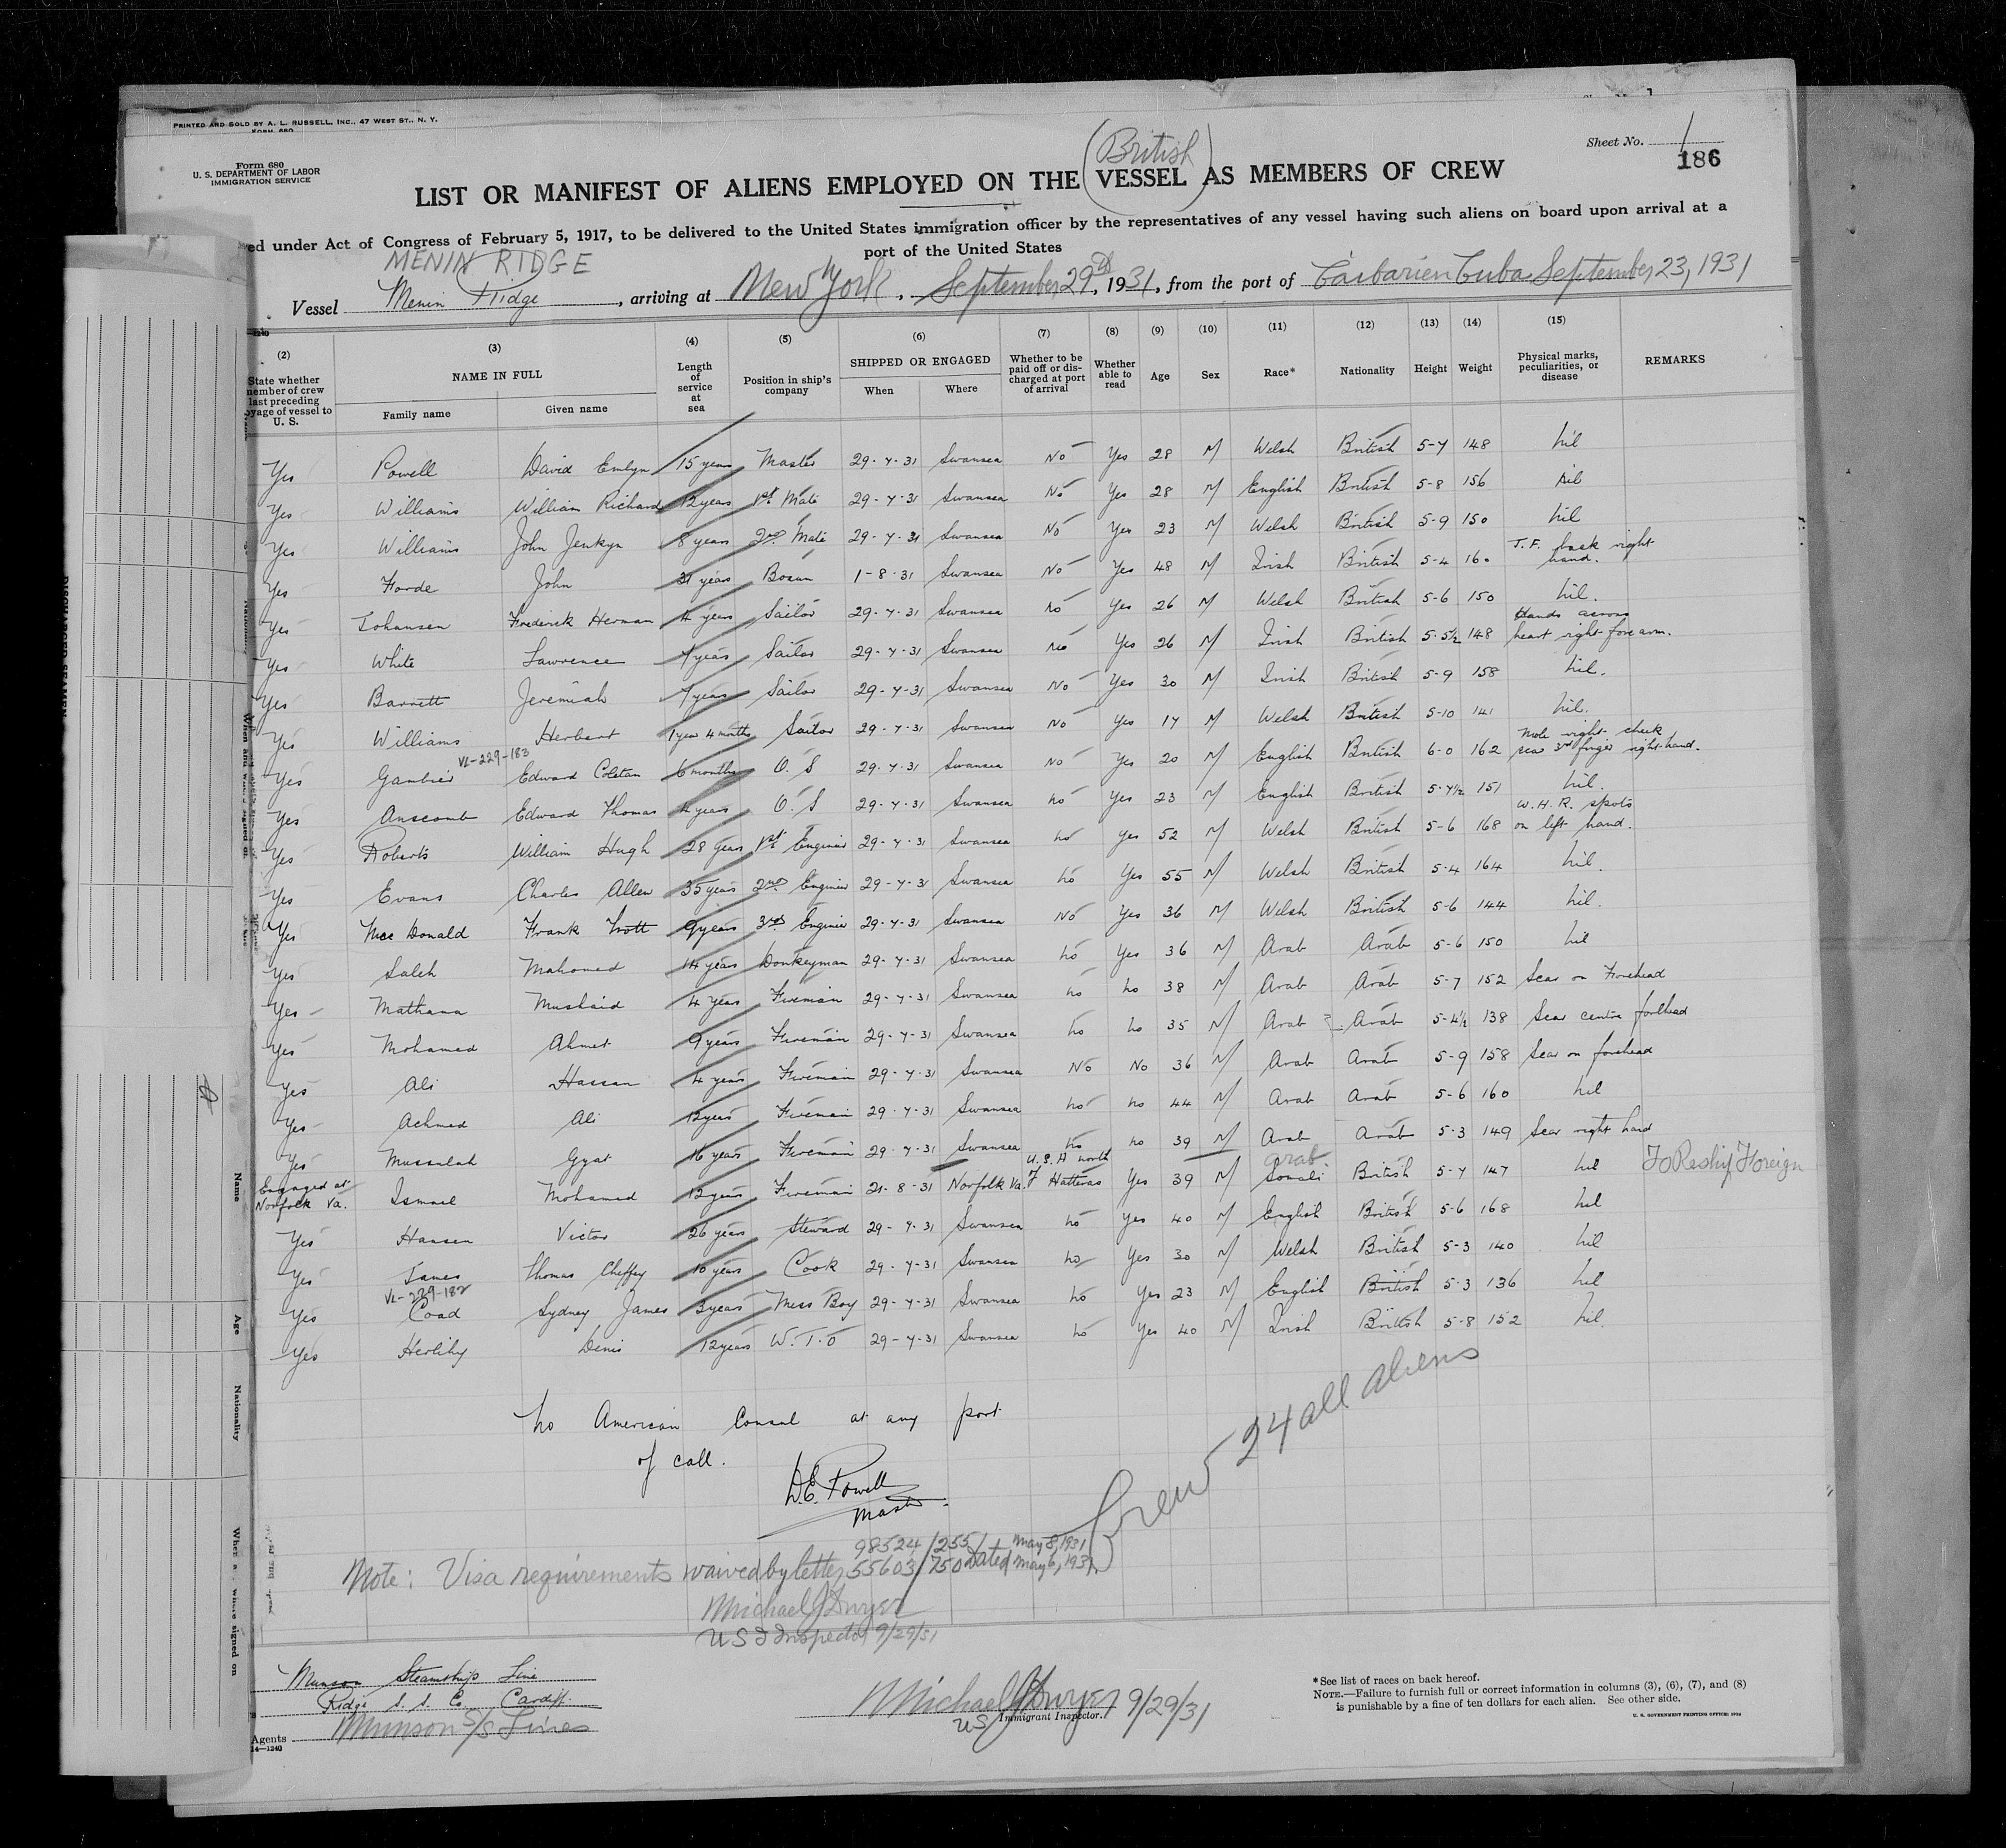 PRINTED AND SOLD BY A. L. RUSSELL, INC., 47 WEST ST., N. Y.
Form 680
U. S. DEPARTMENT OF LABOR
IMMIGRATION SERVICE
Sheet No. 1
186
(British)
LIST OR MANIFEST OF ALIENS EMPLOYED ON THE VESSEL AS MEMBERS OF CREW
ed under Act of Congress of February 5, 1917, to be delivered to the United States immigration officer by the representatives of any vessel having such aliens on board upon arrival at a
port of the United States
MENIN RIDGE
Vessel Menin Ridge, arriving at New York, September 29th, 1931, from the port of Caibarien Cuba September 23, 1931
(2) (3) (4) (5) (6) (7) (8) (9) (10) (11) (12) (13) (14) (15)
State whether member of crew last preceding voyage of vessel to U. S.
NAME IN FULL
Family name Given name
Length of service at sea
Position in ship's company
SHIPPED OR ENGAGED
When Where
Whether to be paid off or discharged at port of arrival
Whether able to read
Age Sex Race* Nationality Height Weight
Physical marks, peculiarities, or disease
REMARKS
Yes Powell David Emlyn 15 years Master 29-7-31 Swansea No Yes 28 M Welsh British 5-7 148 nil
Yes Williams William Richard 12 years 1st Mate 29-7-31 Swansea No Yes 28 M English British 5-8 156 nil
Yes Williams John Jenkyn 8 years 2nd Mate 29-7-31 Swansea No Yes 23 M Welsh British 5-9 150 nil
Yes Forde John 31 years Bosun 1-8-31 Swansea No Yes 48 M Irish British 5-4 160 T.F. back right hand.
Yes Johansen Frederick Herman 4 years Sailor 29-7-31 Swansea no Yes 26 M Welsh British 5-6 150 nil.
Yes White Lawrence 7 years Sailor 29-7-31 Swansea no Yes 26 M Irish British 5-5½ 148 Hands across heart right forearm.
Yes Barrett Jeremiah 7 years Sailor 29-7-31 Swansea No Yes 30 M Irish British 5-9 158 nil.
Yes Williams Herbert 1 year 4 months Sailor 29-7-31 Swansea No Yes 17 M Welsh British 5-10 141 nil.
VL-229-183
Yes Gambier Edward Colstan 6 months O.S 29-7-31 Swansea No Yes 20 M English British 6-0 162 Mole right cheek scar 3rd finger right hand.
Yes Anscomb Edward Thomas 4 years O.S 29-7-31 Swansea no Yes 23 M English British 5-7½ 151 nil.
Yes Roberts William Hugh 28 years 1st Engineer 29-7-31 Swansea no yes 52 M Welsh British 5-6 168 W.H.R. spots on left hand.
Yes Evans Charles Allen 35 years 2nd Engineer 29-7-31 Swansea no Yes 55 M Welsh British 5-4 164 nil.
Yes MacDonald Frank 9 years 3rd Engineer 29-7-31 Swansea No Yes 36 M Welsh British 5-6 144 nil.
Yes Saleh Mahomed 14 years Donkeyman 29-7-31 Swansea no Yes 36 M Arab Arab 5-6 150 nil
Yes Mathana Mushaid 4 years Fireman 29-7-31 Swansea no no 38 M Arab Arab 5-7 152 Scar on Forehead
Yes Mohamed Ahmet 9 years Fireman 29-7-31 Swansea no no 35 M Arab Arab 5-4½ 138 Scar centre forehead
Yes Ali Hassan 4 years Fireman 29-7-31 Swansea No No 36 M Arab Arab 5-9 158 Scar on forehead
Yes Achmed Ali 12 years Fireman 29-7-31 Swansea no no 44 M Arab Arab 5-6 160 nil
Yes Mussalah Gyat 16 years Fireman 29-7-31 Swansea no no 39 M Arab Arab 5-3 149 Scar right hand
Engaged at Norfolk Va. Ismael Mohamed 12 years Fireman 21-8-31 Norfolk Va. U.S.A north of Hatteras Yes 39 M Arab Somali British 5-7 147 nil To Reship Foreign
Yes Hansen Victor 26 years Steward 29-7-31 Swansea no Yes 40 M English British 5-6 168 nil
Yes James Thomas Cheffey 10 years Cook 29-7-31 Swansea no Yes 30 M Welsh British 5-3 140 nil
VL-229-182
Yes Coad Sydney James 3 years Mess Boy 29-7-31 Swansea no Yes 23 M English British 5-3 136 nil
Yes Herlihy Denis 12 years W.T.O 29-7-31 Swansea no Yes 40 M Irish British 5-8 152 nil.
Crew 24 all aliens
No American Consul at any port
of call.
D.E. Powell
Master.
98524/255 May 8, 1931
Note: Visa requirements waived by letter 55603/750 dated May 6, 1931
Michael J Dwyer
US I Inspector 9/29/31
Munson Steamship Line
Ridge S.S. Co. Cardiff.
Agents Munson S/S Lines
14—1240
Michael J Dwyer 9/29/31
US Immigrant Inspector.
*See list of races on back hereof.
NOTE.—Failure to furnish full or correct information in columns (3), (6), (7), and (8)
is punishable by a fine of ten dollars for each alien. See other side.
Name
Age
Nationality